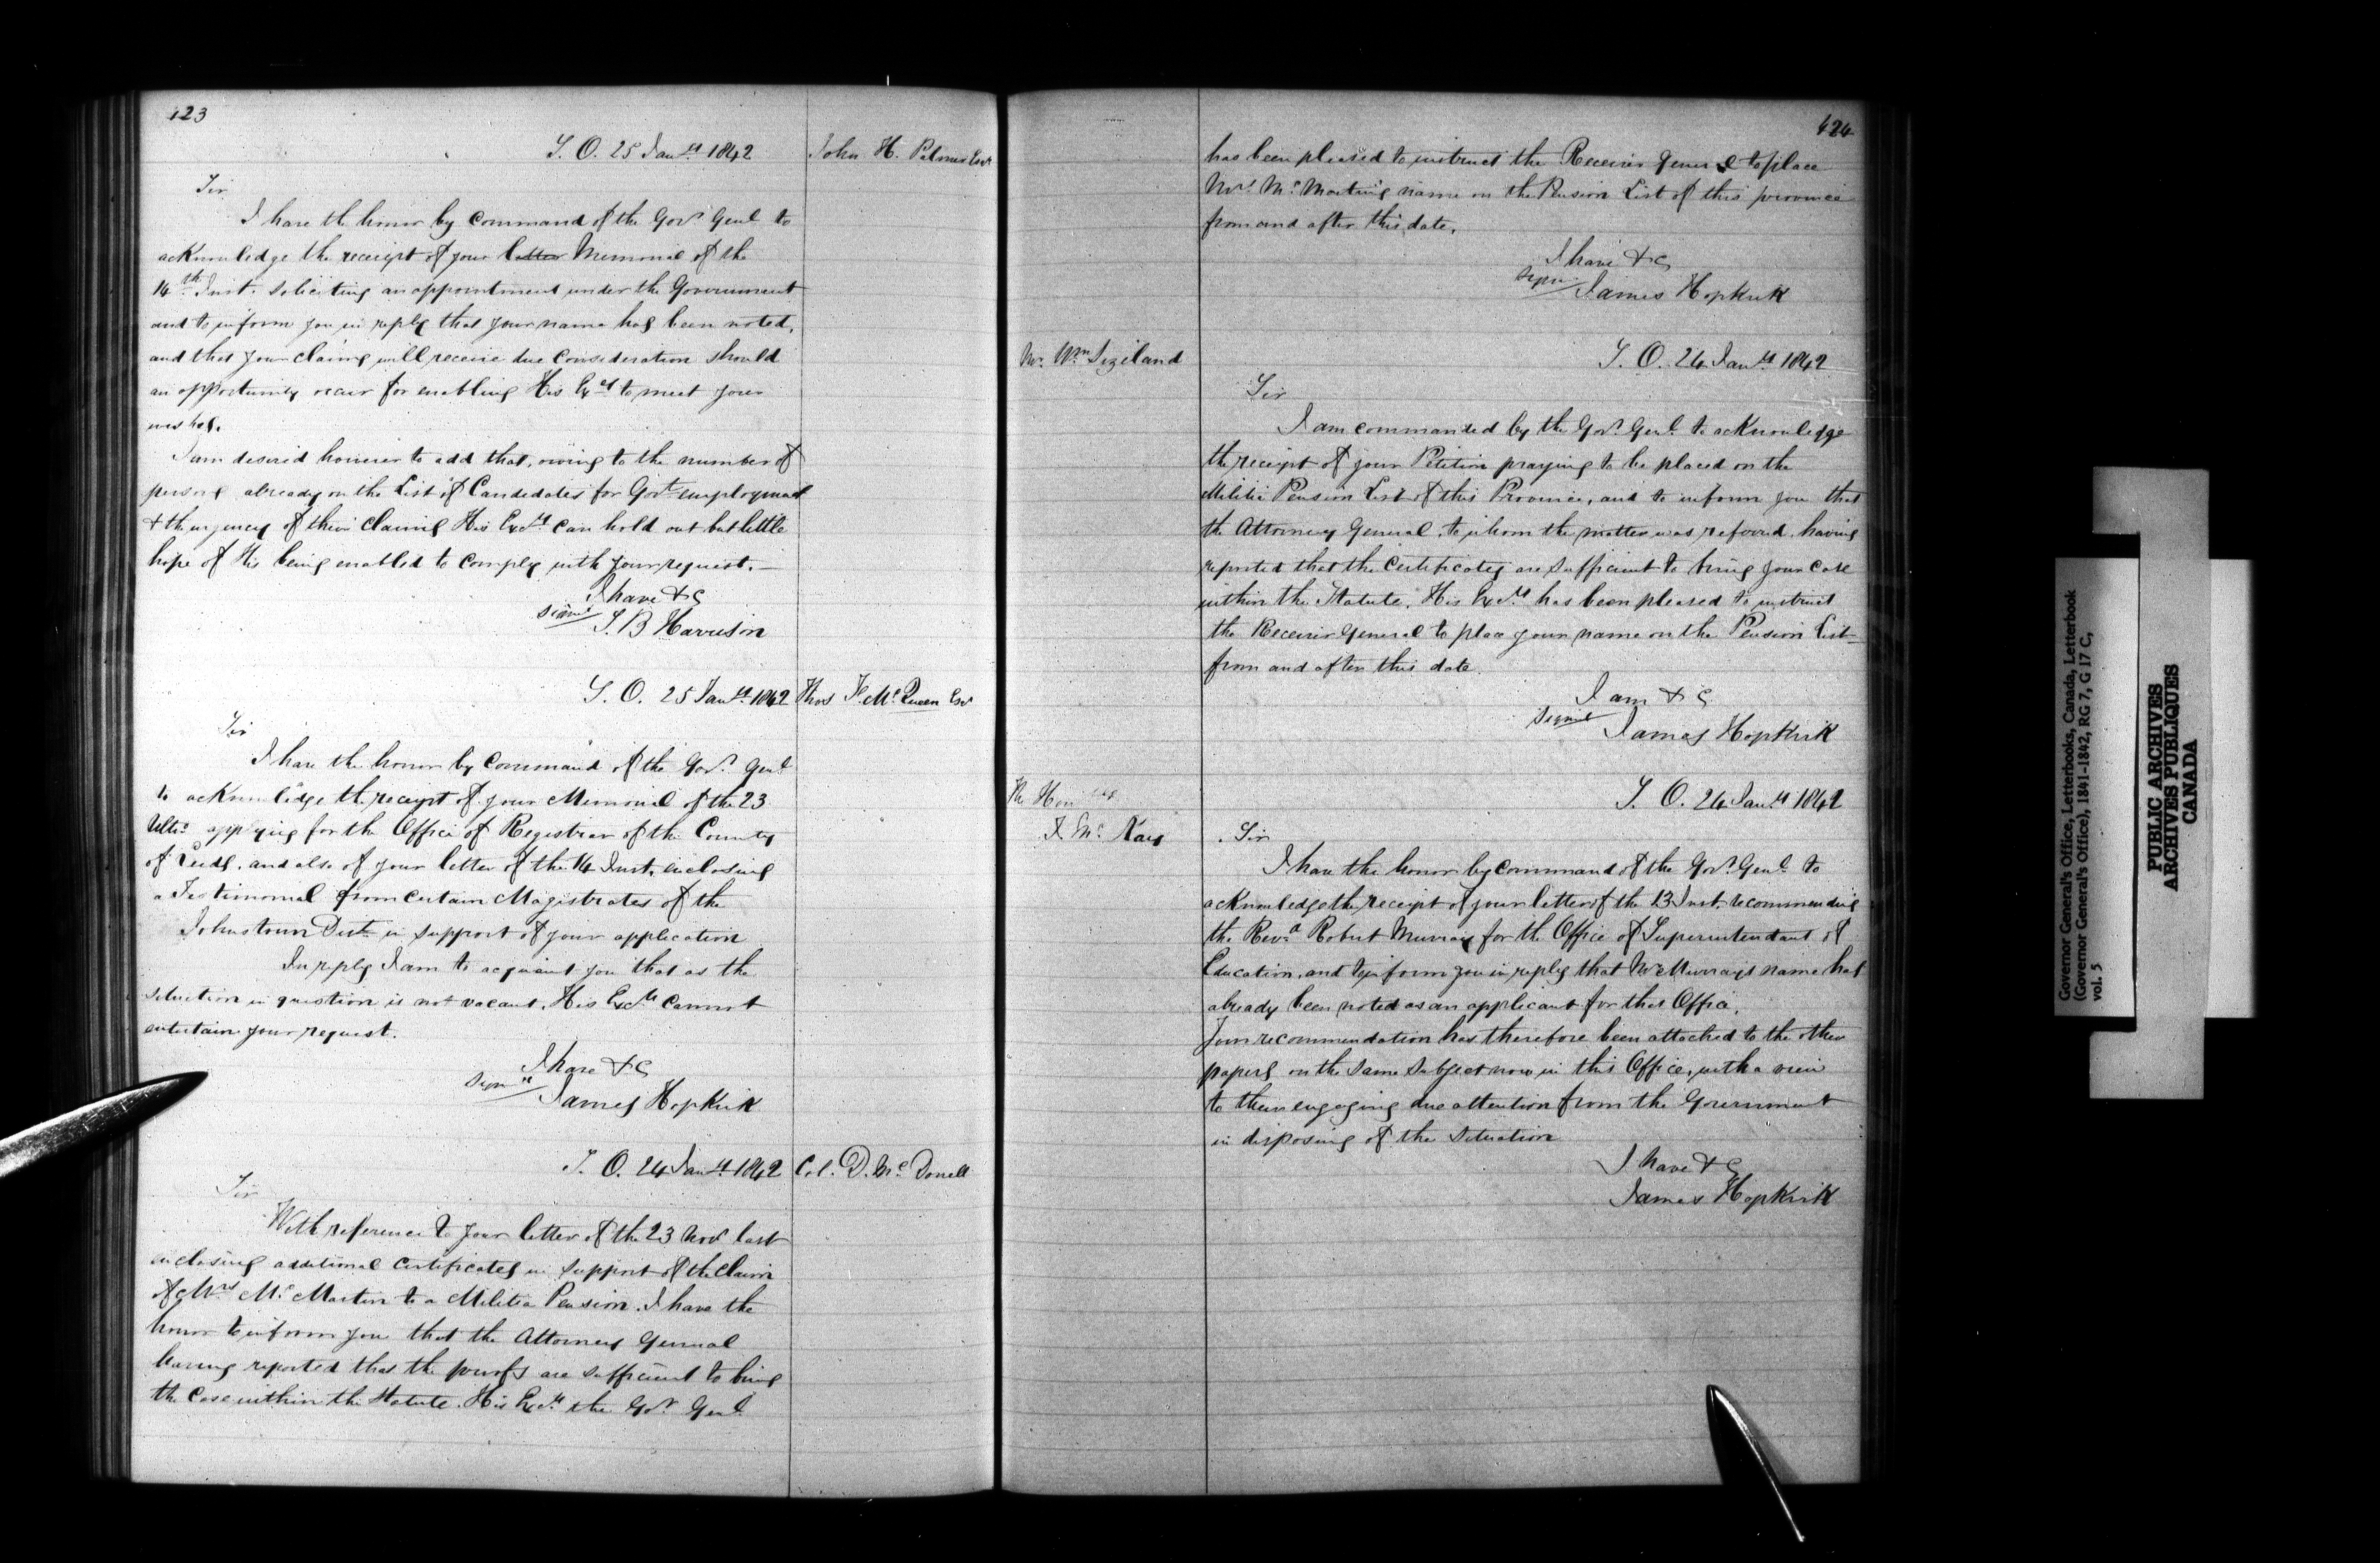 423
S. O. 25 Jany 1842
John H. Palmer Esqr
Sir
I have the honor by Command of the Govr Genl to
acknowledge the receipt of your letter Memorial of the
14th Inst. soliciting an appointment under the Government
and to inform you in reply that your name has been noted,
and that your claims will receive due Consideration should
an opportunity occur for enabling His Excy to meet your
wishes.
I am desired however to add that, owing to the number of
persons already on the List of Candidates for Govt employment
& the urgency of their Claims His Excy can hold out but little
hope of His being enabled to Comply with your request.
I have &c
Signed
S. B Harrison
S. O. 25 Jany 1842
Thos McQueen Esqr
Sir
I have the honor by Command of the Govr Genl
to acknowledge the receipt of your Memorial of the 23
Ulto applying for the Office of Registrar of the County
of Leeds, and also of your letter of the 14 Inst. enclosing
a Testimonial from certain Magistrates of the
Johnstown Dist. in support of your application
In reply I am to acquaint you that as the
situation in question is not vacant, His Excy cannot
entertain your request.
I have &c
Signed
James Hopkirk
S. O. 24 Jany 1842
Col. D. McDonell
Sir
With reference to your letter of the 23 Novr last
enclosing additional Certificates in support of the Claim
of Mrs McMartin to a Militia Pension. I have the
honor to inform you that the Attorney General
having reported that the proofs are sufficient to bring
the Case within the Statute. His Excy the Govr Genl
424
has been pleased to instruct the Receiver General to place
Mrs McMartin's name on the Pension List of this province
from and after this date.
I have &c
Signed
James Hopkirk
Mr. Wm Sizeland
S. O. 24 Jany 1842
Sir
I am commanded by the Govr Genl to acknowledge
the receipt of your Petition praying to be placed on the
Militia Pension List of this Province, and to inform you that
the Attorney General, to whom the matter was referred, having
reported that the Certificates are sufficient to bring your Case
within the Statute. His Excy has been pleased to instruct
the Receiver General to place your name on the Pension List
from and after this date.
I am &c
Signed
James Hopkirk
The Honble
S. O. 24 Jany 1842
McKay
Sir
I have the honor by Command of the Govr Genl to
acknowledge the receipt of your letter of the 13 Inst. recommending
the Revd Robert Murray for the Office of Superintendant of
Education, and to inform you in reply that Mr Murray's name has
already been noted as an applicant for that Office.
Your recommendation has therefore been attached to the other
papers on the same subject now in this Office, with a view
to their engaging due attention from the Government
in disposing of the situation
I have &c
James Hopkirk
Governor General's Office, Letterbooks, Canada, Letterbook
(Governor General's Office), 1841-1842, RG 7, G 17 C,
vol. 5
PUBLIC ARCHIVES
ARCHIVES PUBLIQUES
CANADA